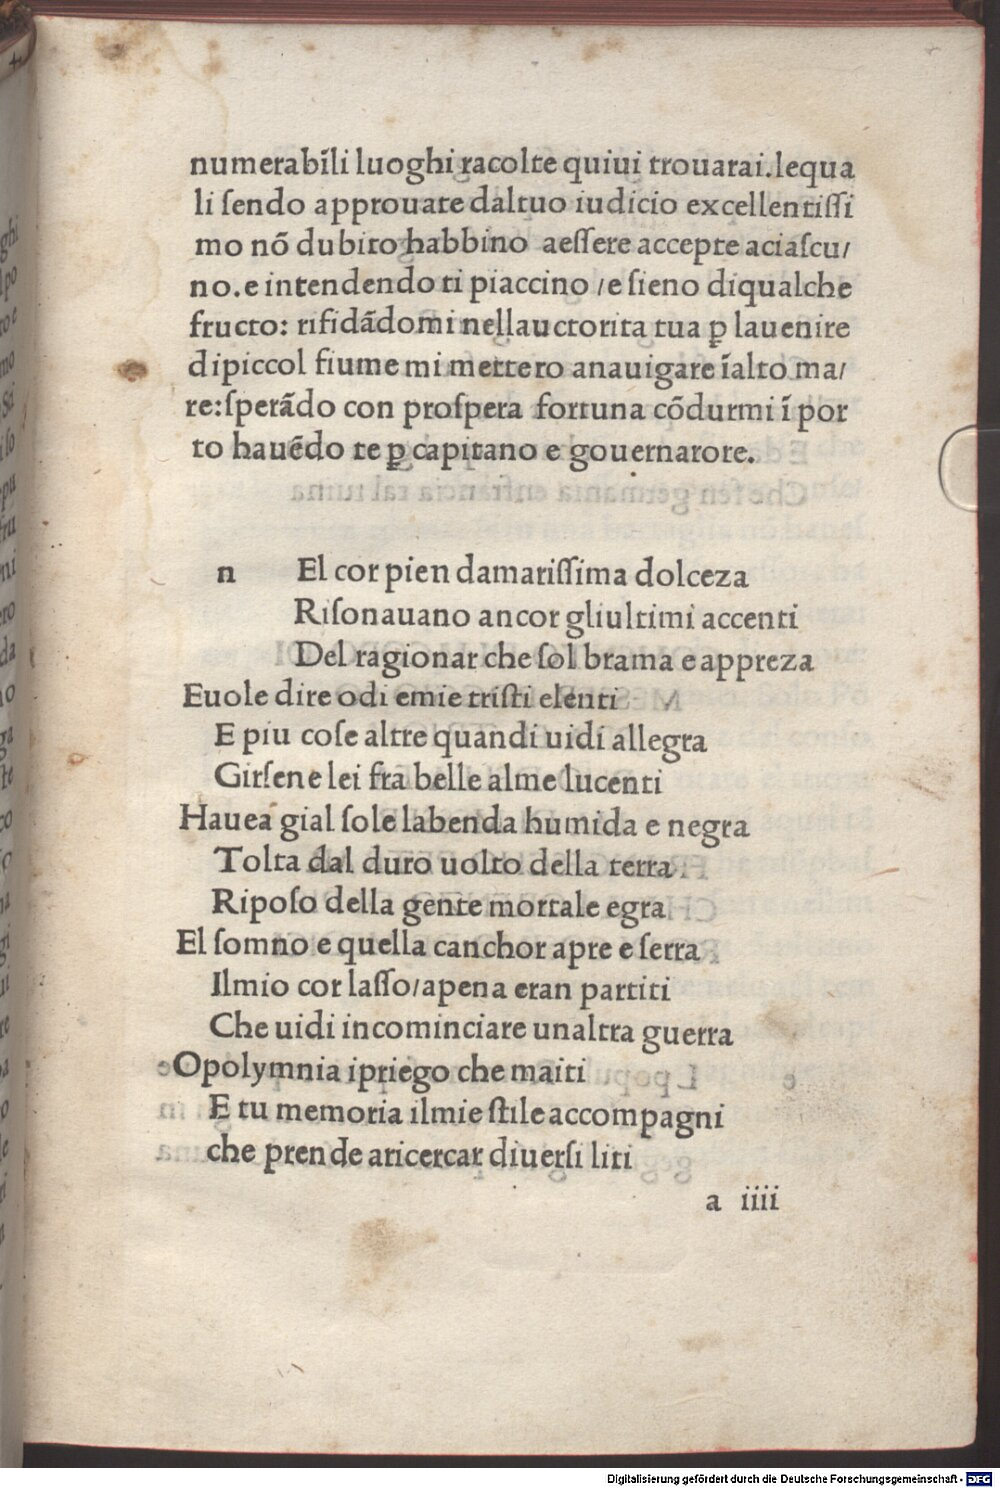 numerabĩli luoghi racolte quiui trouarai.lequa
li ſendo approuate daltuo iudicio excellentiſſi
mo nõ dubito habbino aeſſere accepte aciaſcu/
no.e intendendo ti piaccino /e ſieno diqualche
fructo: rifidãdomi nellauctorita tua ꝑ lauenire
dipiccol fiume mi mettero anauigare ĩalto ma/
re:ſperãdo con proſpera fortuna cõdurmi ĩ por
to hauẽdo te ꝑ capitano e gouernarore.
n El cor pien damariſſima dolceza
Riſonauano ancor gliultimi accenti
Del ragionar che ſol brama e appreza
Euole dire odi emie triſti elenti
E piu coſe altre quandi uidi allegra
Girſene lei fra belle alme lucenti
Hauea gial ſole labenda humida e negra
Tolta dal duro uolto della terra
Ripoſo della gente mortale egra
El ſomno e quella canchor apre e ſerra
Ilmio cor laſſo/apena eran partiti
Che uidi incominciare unaltra guerra
Opolymnia ipriego che maiti
E tu memoria ilmie ſtile accompagni
che prende aricercar diuerſi liti
a iiii
Digitalisierung gefördert durch die Deutsche Forschungsgemeinschaft - DFG